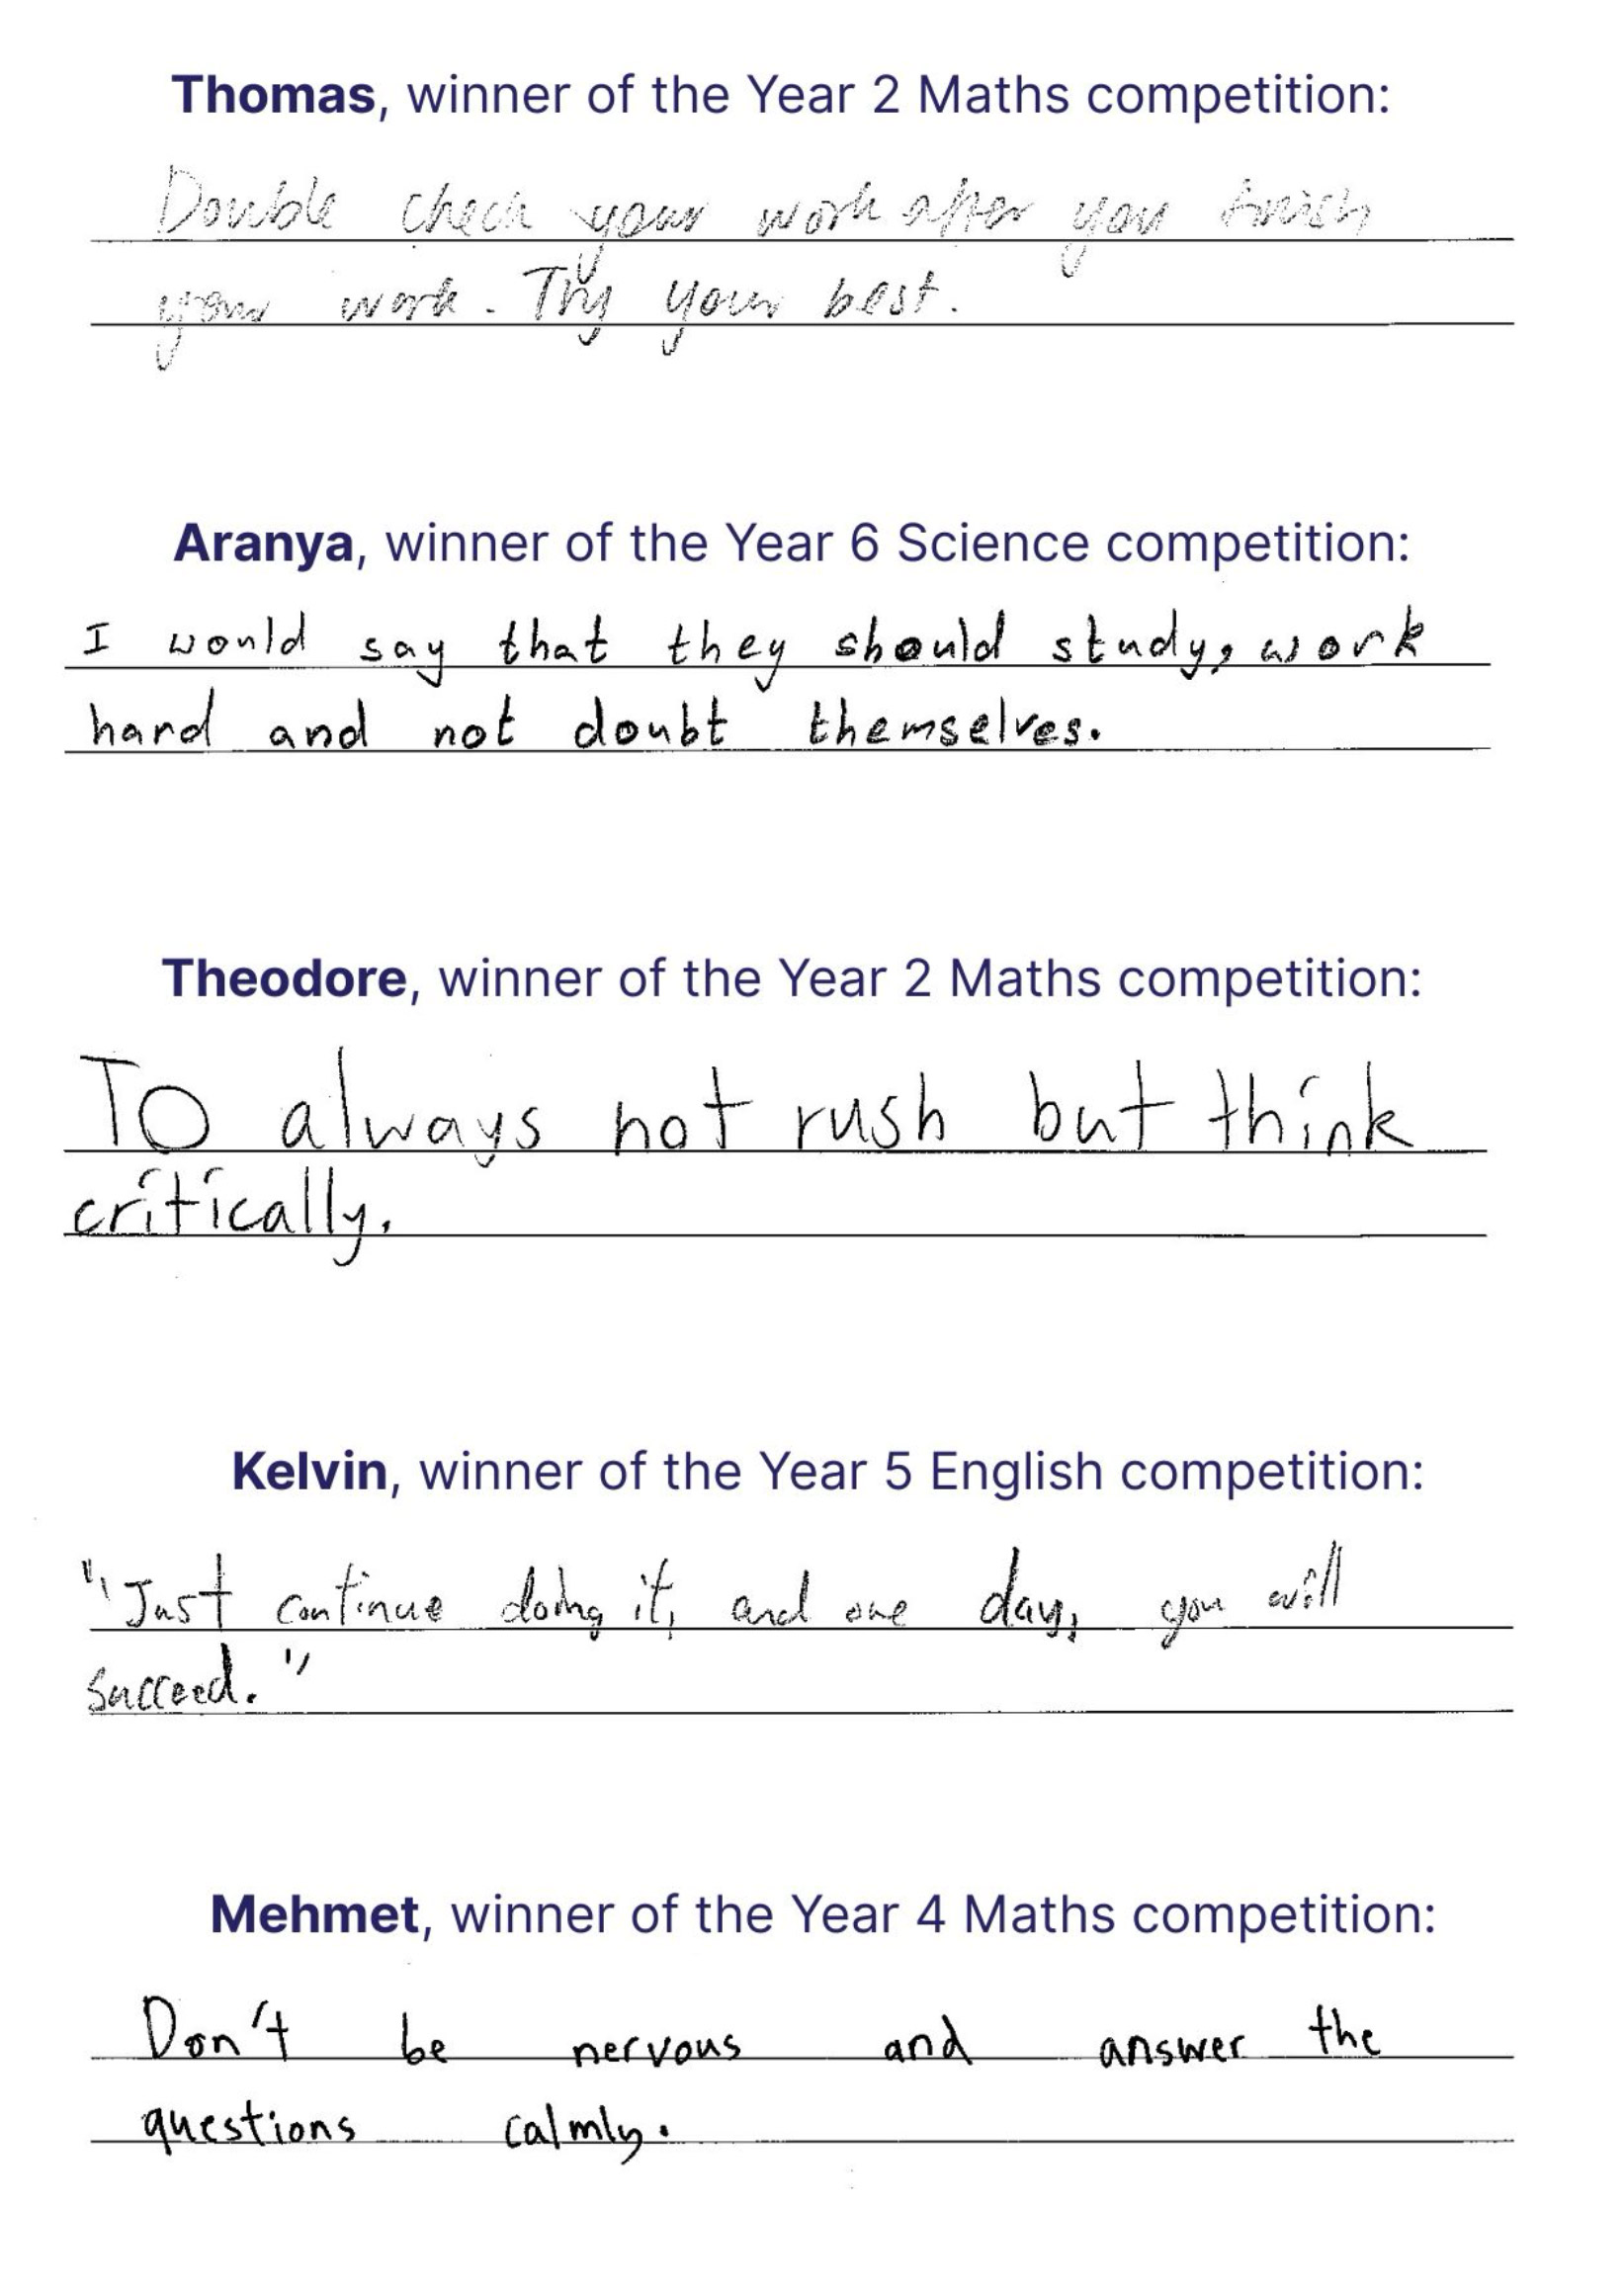 Thomas, winner of the Year 2 Maths competition:
Double check your work after you finish
your work. Try your best.
Aranya, winner of the Year 6 Science competition:
I would say that they should study, work
hard and not doubt themselves.
Theodore, winner of the Year 2 Maths competition:
TO always not rush but think
critically.
Kelvin, winner of the Year 5 English competition:
"Just continue doing it, and one day, you will
succeed."
Mehmet, winner of the Year 4 Maths competition:
Don't be nervous and answer the
questions calmly.